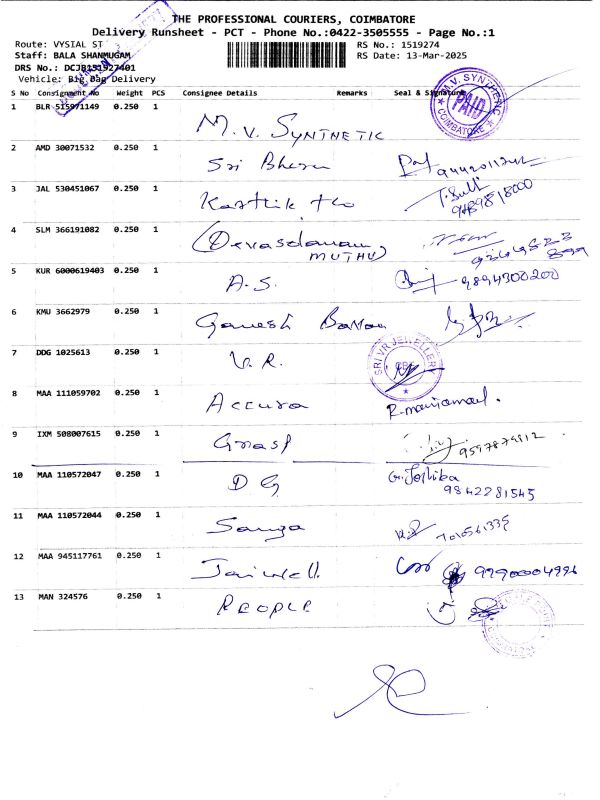 THE PROFESSIONAL COURIERS, COIMBATORE
Delivery Runsheet - PCT - Phone No.:0422-3505555 - Page No.:1
Route: VYSIAL ST RS No.: 1519274
Staff: BALA SHANMUGAM RS Date: 13-Mar-2025
DRS No.: DCJB151927401
Vehicle: Big Bag Delivery
S No Consignment No Weight PCS Consignee Details Remarks Seal & Signature
M.V. SYNTHETIC PAID COIMBATORE
1 BLR 515971149 0.250 1 M.V. SYNTHETIC
2 AMD 30071532 0.250 1 Sri
3 JAL 530451067 0.250 1 Karthik
4 SLM 366191082 0.250 1 MUTHU
5 KUR 6000619403 0.250 1 A.S. 9894300200
6 KMU 3662979 0.250 1 Ganesh
7 DDG 1025613 0.250 1 V.R. SRI VR JEWELLERY
8 MAA 111059702 0.250 1 Accura
9 IXM 508007615 0.250 1
10 MAA 110572047 0.250 1 D G G. Joshiba
9842281545
11 MAA 110572044 0.250 1
12 MAA 945117761 0.250 1
13 MAN 324576 0.250 1 PEOPLE